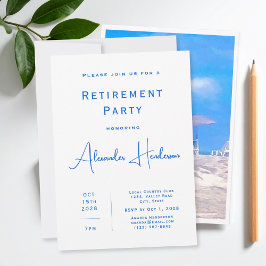 PLEASE JOIN US FOR A
RETIREMENT
PARTY
HONORING
Alexander Henderson
OCT
15TH
2028
7PM
LOCAL COUNTRY CLUB
1234 ROAD NAME
CITY, STATE
RSVP BY OCT 1, 2028
AMANDA HENDERSON